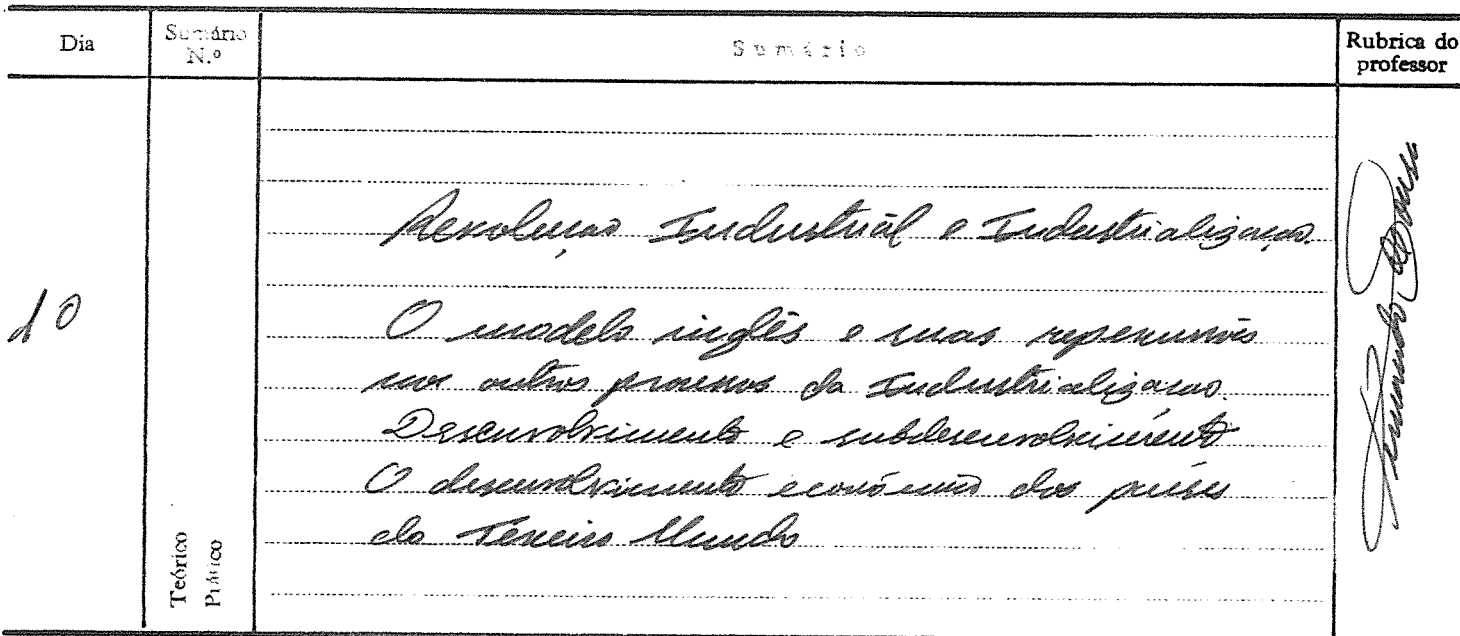 Dia
Sumário N.º
Sumário
Rubrica do professor
10
Revolução Industrial e Industrialização.
O modelo inglês e suas repercussões
nos outros processos da Industrialização.
Desenvolvimento e subdesenvolvimento
O desenvolvimento económico dos países
do Terceiro Mundo
Teórico
Prático